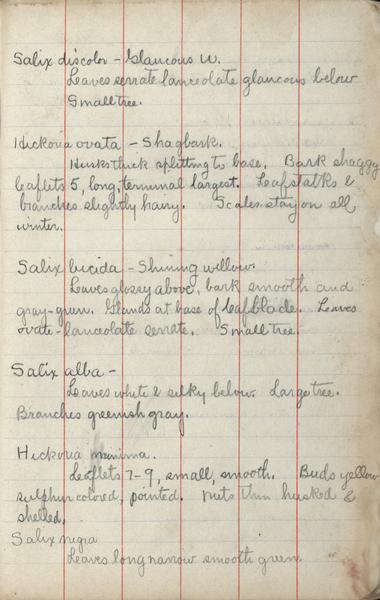 Salix discolor - Glaucous W.
Leaves serrate lanceolate glaucous below
Small tree.
Hickoria ovata - Shagbark.
Husks thick splitting to base. Bark shaggy
leaflets 5, long, terminal largest. Leafstalks &
branches slightly hairy. Scales stay on all
winter.
Salix lucida - Shining willow.
Leaves glossy above, bark smooth and
gray-green. Glands at base of leaf blade. Leaves
ovate-lanceolate serrate. Small tree.
Salix alba -
Leaves white & silky below. Large tree.
Branches greenish gray.
Hickoria minima.
Leaflets 7-9, small, smooth. Buds yellow
sulphur colored, pointed. nuts thin husked &
shelled.
Salix nigra
Leaves long narrow smooth green.